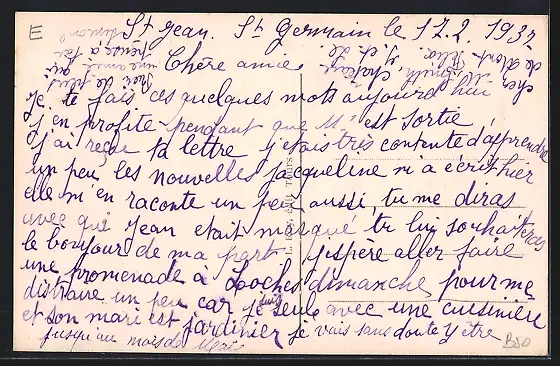 E
St Jean. St Germain le 17.2.1937
Chère amie
Je te fais ces quelques mots aujourd'hui
j'en profite pendant que Mr est sortie
j'ai reçue ta lettre j'etais très contente d'apprendre
un peu les nouvelles Jacqueline m'a écrit hier
elle m'en raconte un peu aussi, tu me diras
avec qui Jean etait masqué tu lui souhaiteras
le bonjour de ma part j'espère aller faire
une promenade à Loches dimanche pour me
distraire un peu car je suis seule avec une cuisinière
et son mari est jardinier je vais sans doute y être
jusqu'au mois de Mai
chez M.